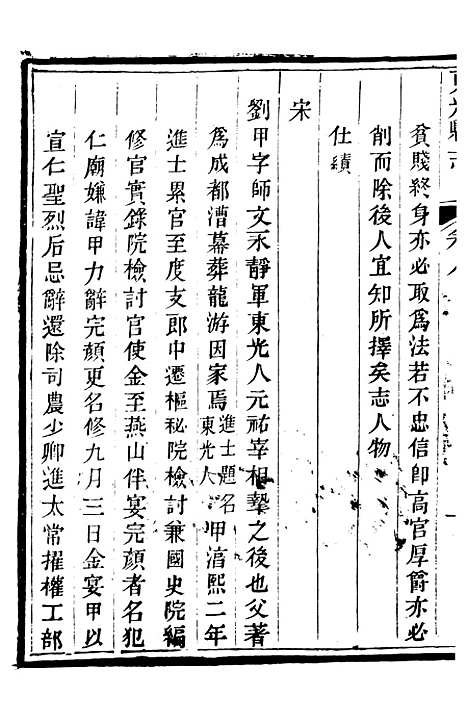 東光縣志 卷八
貧賤終身亦必取為法若不忠信卽高官厚爵亦必
削而除後人宜知所擇矣志人物
仕績
宋
劉甲字師文永靜軍東光人元祐宰相摯之後也父著
為成都漕幕葬龍游因家焉進士題名東光人甲淳熙二年
進士累官至度支郎中遷樞秘院檢討兼國史院編
修官實錄院檢討官使金至燕山伴宴完顏者名犯
仁廟嫌諱甲力辭完顏更名修九月三日金宴甲以
宣仁聖烈后忌辭還除司農少卿進太常擢權工部